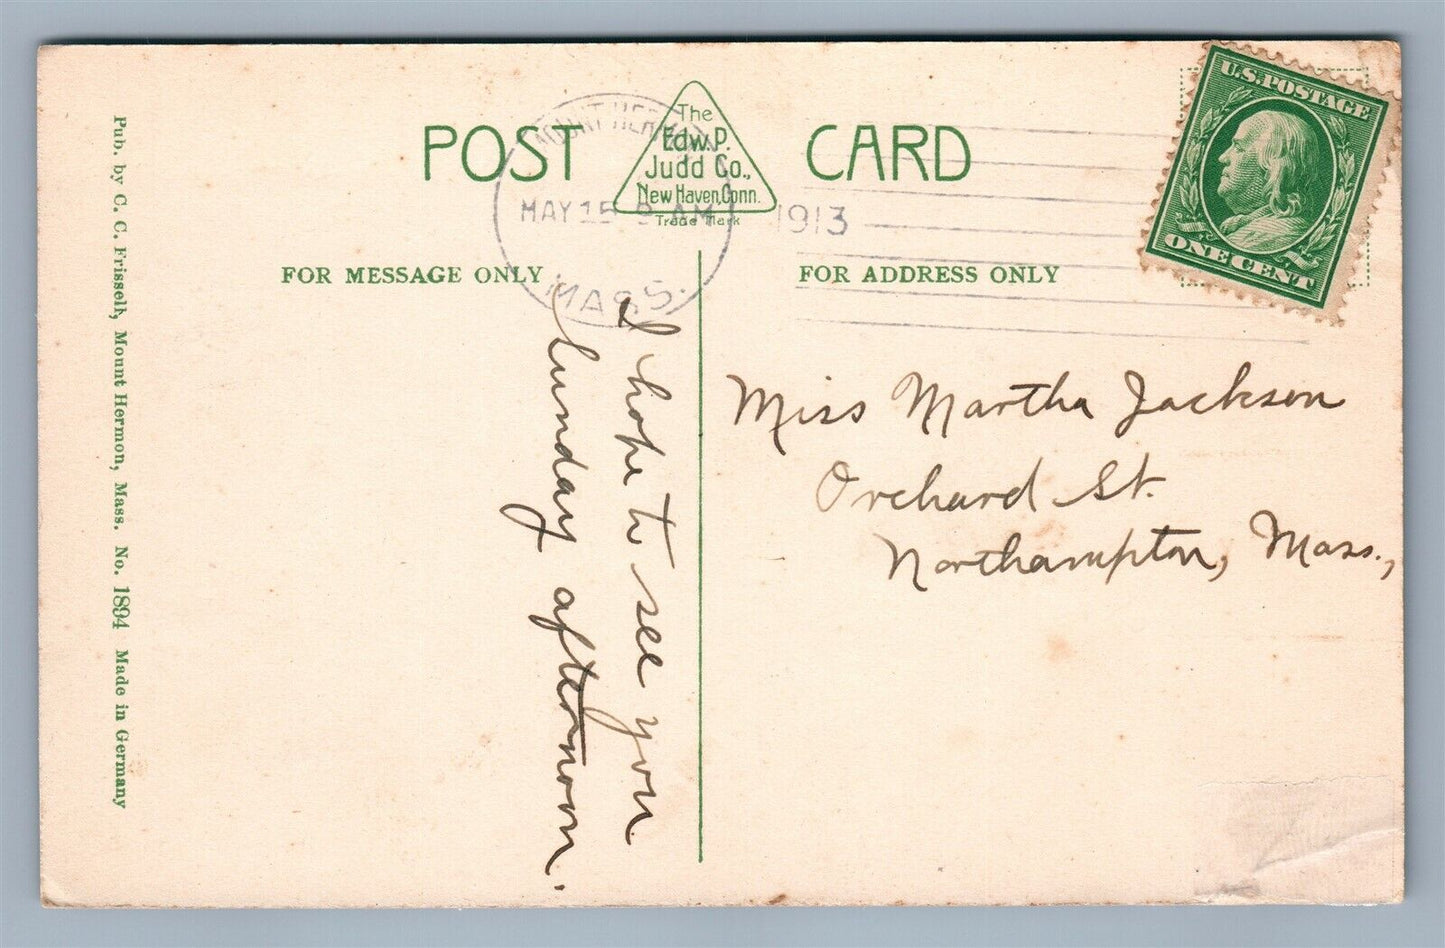 POST CARD
The
Edw. P.
Judd Co.,
New Haven, Conn.
Trade Mark
MOUNT HERMON
MAY 15 9 AM 1913
MASS.
U.S. POSTAGE
ONE CENT
FOR MESSAGE ONLY
FOR ADDRESS ONLY
Pub. by C. C. Frissell, Mount Hermon, Mass. No. 1894 Made in Germany
I hope to see you
Sunday afternoon.
Miss Martha Jackson
Orchard St.
Northampton, Mass.,